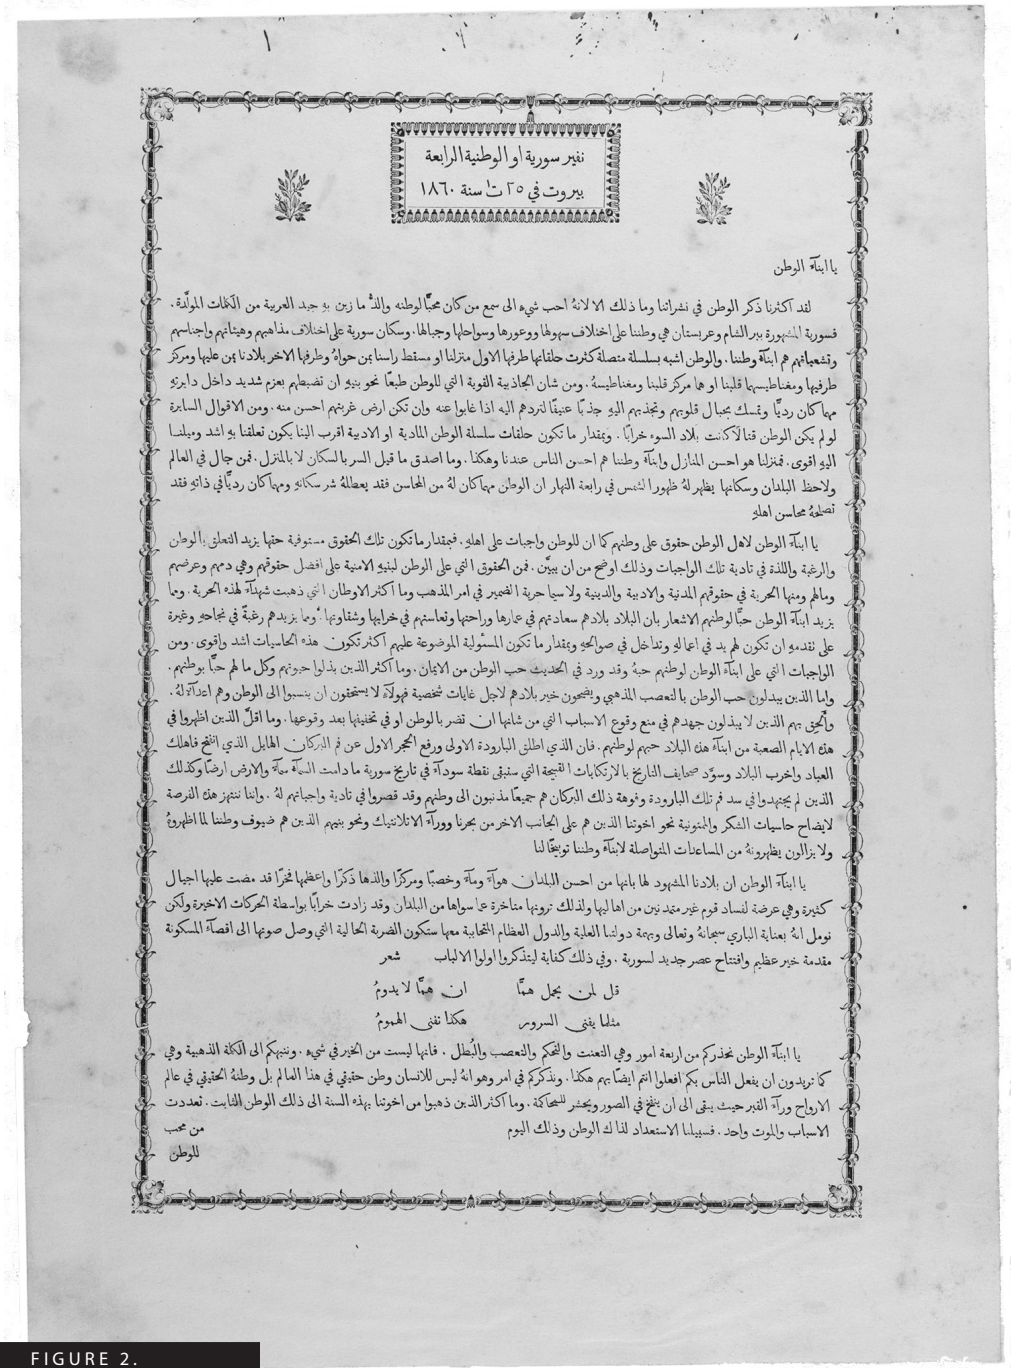 نفير سورية او الوطنية الرابعة
بيروت في ٢٥ ت١ سنة ١٨٦٠
يا ابنآء الوطن
لقد اكثرنا ذكر الوطن في نشراتنا وما ذلك الا لانهُ احب شيء الى سمع من كان محبًّا لوطنه والذُّ ما زين بهِ جيد العربية من الكلمات المولّدة .
فسورية المشهورة ببر الشام وعربستان هي وطننا على اختلاف سهولها ووعورها وسواحلها وجبالها . وسكان سورية على اختلاف مذاهبهم وهيئاتهم واجناسهم
وتشعباتهم هم ابنآء وطننا . والوطن اشبه بسلسلة متصلة كثرت حلقاتها طرفها الاول منزلنا او مسقط راسنا بمن حواهُ وطرفها الاخر بلادنا بمن عليها ومركز
طرفيها ومغناطيسهما قلبنا او هما مركز قلبنا ومغناطيسهُ . ومن شان الجاذبية القوية التي للوطن طبعًا نحو بنيهِ ان تضبطهم بعزم شديد داخل دايرتهِ
مهما كان رديًّا وتمسك بحبال قلوبهم وتجذبهم اليهِ جذبًا عنيفًا لتردهم اليه اذا غابوا عنه وان تكن ارض غربتهم احسن منه . ومن الاقوال السايرة
لو لم يكن الوطن قتالًا لكانت بلاد السوء خرابًا . وبمقدار ما تكون حلقات سلسلة الوطن المادية او الادبية اقرب الينا يكون تعلقنا بهِ اشد وميلنا
اليهِ اقوى . فمنزلنا هو احسن المنازل وابنآء وطننا هم احسن الناس عندنا وهكذا . وما اصدق ما قيل السر بالسكان لا بالمنزل . فمن جال في العالم
ولاحظ البلدان وسكانها يظهر لهُ ظهور الشمس في رابعة النهار ان الوطن مهما كان لهُ من المحاسن فقد يعطلهُ شر سكانهِ ومهما كان رديًّا في ذاتهِ فقد
تصلحهُ محاسن اهلهِ
يا ابنآء الوطن لاهل الوطن حقوق على وطنهم كما ان للوطن واجبات على اهلهِ . فبمقدار ما تكون تلك الحقوق مستوفية حقها يزيد التعلق بالوطن
والرغبة واللذة في تادية تلك الواجبات وذلك اوضح من ان يبيَّن . فمن الحقوق التي على الوطن لبنيهِ الامنية على افضل حقوقهم وهي دمهم وعرضهم
ومالهم ومنها الحرية في حقوقهم المدنية والادبية والدينية ولا سيما حرية الضمير في امر المذهب وما اكثر الاوطان التي ذهبت شهدآء لهذه الحرية . ومما
يزيد ابنآء الوطن حبًّا لوطنهم الاشعار بان البلاد بلادهم سعادتهم في عمارها وراحتها وتعاستهم في خرابها وشقاوتها . ومما يزيدهم رغبةً في نجاحهِ وغيرة
على تقدمهِ ان تكون لهم يد في اعمالهِ وتداخل في صوالحهِ وبمقدار ما تكون المسئولية الموضوعة عليهم اكثر تكون هذه الحاسيات اشد واقوى . ومن
الواجبات التي على ابنآء الوطن لوطنهم حبهُ وقد ورد في الحديث حب الوطن من الايمان . وما اكثر الذين بذلوا حيوتهم وكل ما لهم حبًّا بوطنهم .
واما الذين يبدلون حب الوطن بالتعصب المذهبي ويضحون خير بلادهم لاجل غايات شخصية فهولآء لا يستحقون ان ينسبوا الى الوطن وهم اعدآء لهُ .
وأُلحِق بهم الذين لا يبذلون جهدهم في منع وقوع الاسباب التي من شانها ان تضر بالوطن او في تخفيفها بعد وقوعها . وما اقلَّ الذين اظهروا في
هذه الايام الصعبة من ابنآء هذه البلاد حبهم لوطنهم . فان الذي اطلق البارودة الاولى ورفع الحجر الاول عن فم البركان الهايل الذي انفتح فاهلك
العباد واخرب البلاد وسوَّد صحايف التاريخ بالارتكابات القبيحة التي ستبقى نقطة سودآء في تاريخ سورية ما دامت السمآء سمآء والارض ارضًا وكذلك
الذين لم يجتهدوا في سد فم تلك البارودة وفوهة ذلك البركان هم جميعًا مذنبون الى وطنهم وقد قصروا في تادية واجباتهم لهُ . واننا ننتهز هذه الفرصة
لايضاح حاسيات الشكر والممنونية نحو اخوتنا الذين هم على الجانب الاخر من بحرنا وورآء الاتلانتيك ونحو بنيهم الذين هم ضيوف وطننا لما اظهروهُ
ولا يزالون يظهرونهُ من المساعدات المتواصلة لابنآء وطننا توبيخًا لنا
يا ابنآء الوطن ان بلادنا المشهود لها بانها من احسن البلدان هوآء ومآء وخصبًا ومركزًا والذها ذكرًا واعظمها فخرًا قد مضت عليها اجيال
كثيرة وهي عرضة لفساد قوم غير متمدنين من اهاليها ولذلك ترونها متاخرة عما سواها من البلدان وقد زادت خرابًا بواسطة الحركات الاخيرة ولكن
نومل انهُ بعناية الباري سبحانهُ وتعالى وبهمة دولتنا العلية والدول العظام المتحابة معها ستكون الضربة الحالية التي وصل صوتها الى اقصآء المسكونة
مقدمة خير عظيم وافتتاح عصر جديد لسورية . وفي ذلك كفاية ليتذكروا اولوا الالباب شعر
قل لمن يحمل همًّا ان همًّا لا يدومُ
مثلما يفنى السرور هكذا تفنى الهمومُ
يا ابنآء الوطن نحذركم من اربعة امور وهي التعنت والتحكم والتعصب والبُطل . فانها ليست من الخير في شيء . وننبهكم الى الكلمة الذهبية وهي
كما تريدون ان يفعل الناس بكم افعلوا انتم ايضًا بهم هكذا . ونذكركم في امر وهو انهُ ليس للانسان وطن حقيقي في هذا العالم بل وطنهُ الحقيقي في عالم
الارواح ورآء القبر حيث يبقى الى ان ينفخ في الصور ويحشر للمحاكمة . وما اكثر الذين ذهبوا من اخوتنا بهذه السنة الى ذلك الوطن الثابت . تعددت
الاسباب والموت واحد . فسبيلنا الاستعداد لذاك الوطن وذلك اليوم من محب
للوطن
FIGURE 2.